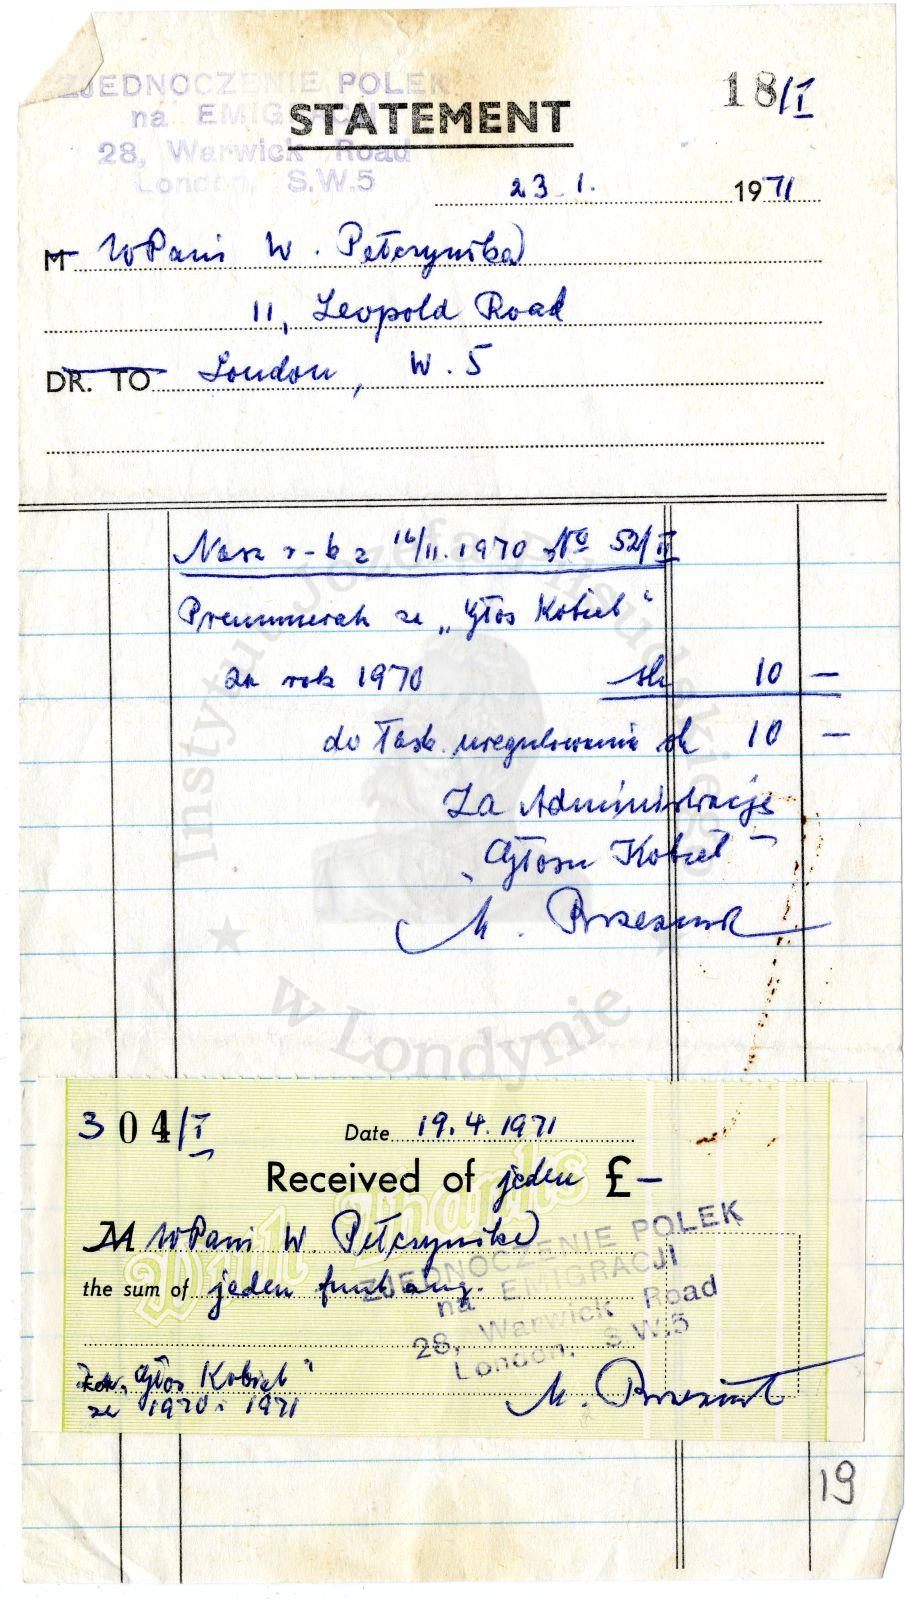 ZJEDNOCZENIE POLEK
na EMIGRACJI
28, Warwick Road
London, S.W.5
18/I
STATEMENT
23.1. 1971
M WPani W. Pełczyńska
11, Leopold Road
DR. TO London, W.5
Nasz r-k z 16/11.1970 No 52/II
Prenumerata za „Głos Kobiet"
za rok 1970 sh 10 —
do łask. uregulowania sh 10 —
Za Administrację
„Głosu Kobiet"
M.
304/I
Date 19.4.1971
Received of jeden £—
M WPani W. Pełczyńska
the sum of jeden funt ang.
ZJEDNOCZENIE POLEK
na EMIGRACJI
28, Warwick Road
London, S.W.5
Za „Głos Kobiet"
za 1970 i 1971
M.
With Thanks
19
Instytut Józefa Piłsudskiego
w Londynie